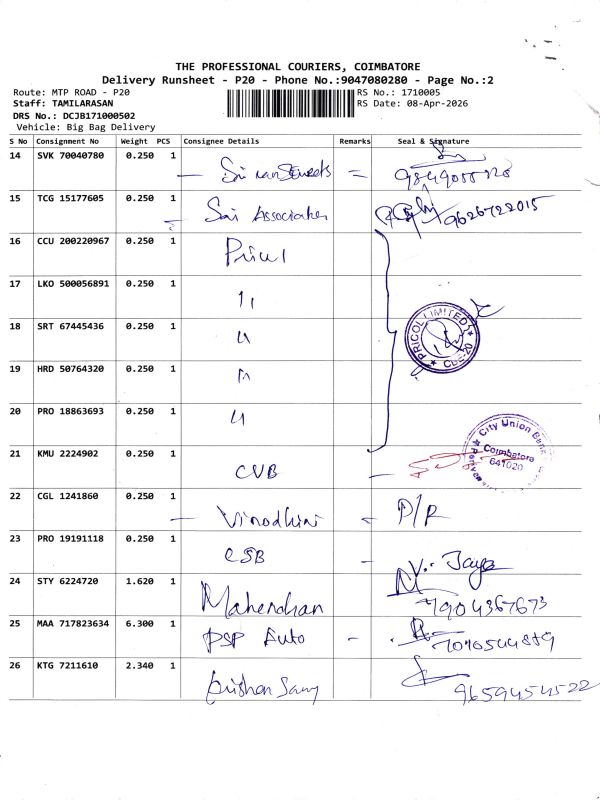 THE PROFESSIONAL COURIERS, COIMBATORE
Delivery Runsheet - P20 - Phone No.:9047080280 - Page No.:2
Route: MTP ROAD - P20 RS No.: 1710005
Staff: TAMILARASAN RS Date: 08-Apr-2026
DRS No.: DCJB171000502
Vehicle: Big Bag Delivery
S No Consignment No Weight PCS Consignee Details Remarks Seal & Signature
14 SVK 70040780 0.250 1 Sri
15 TCG 15177605 0.250 1 Sai Associates 9626722015
16 CCU 200220967 0.250 1 Pricol
17 LKO 500056891 0.250 1 "
18 SRT 67445436 0.250 1 "
PRICOL LIMITED CBE-20
19 HRD 50764320 0.250 1 "
20 PRO 18863693 0.250 1 "
21 KMU 2224902 0.250 1 CUB
City Union Bank Coimbatore 641020
22 CGL 1241860 0.250 1 Vinodhini P/R
23 PRO 19191118 0.250 1 CSB V. Jaya
24 STY 6224720 1.620 1 Mahendran 7904367673
25 MAA 717823634 6.300 1 PSP Auto
26 KTG 7211610 2.340 1 9659454522